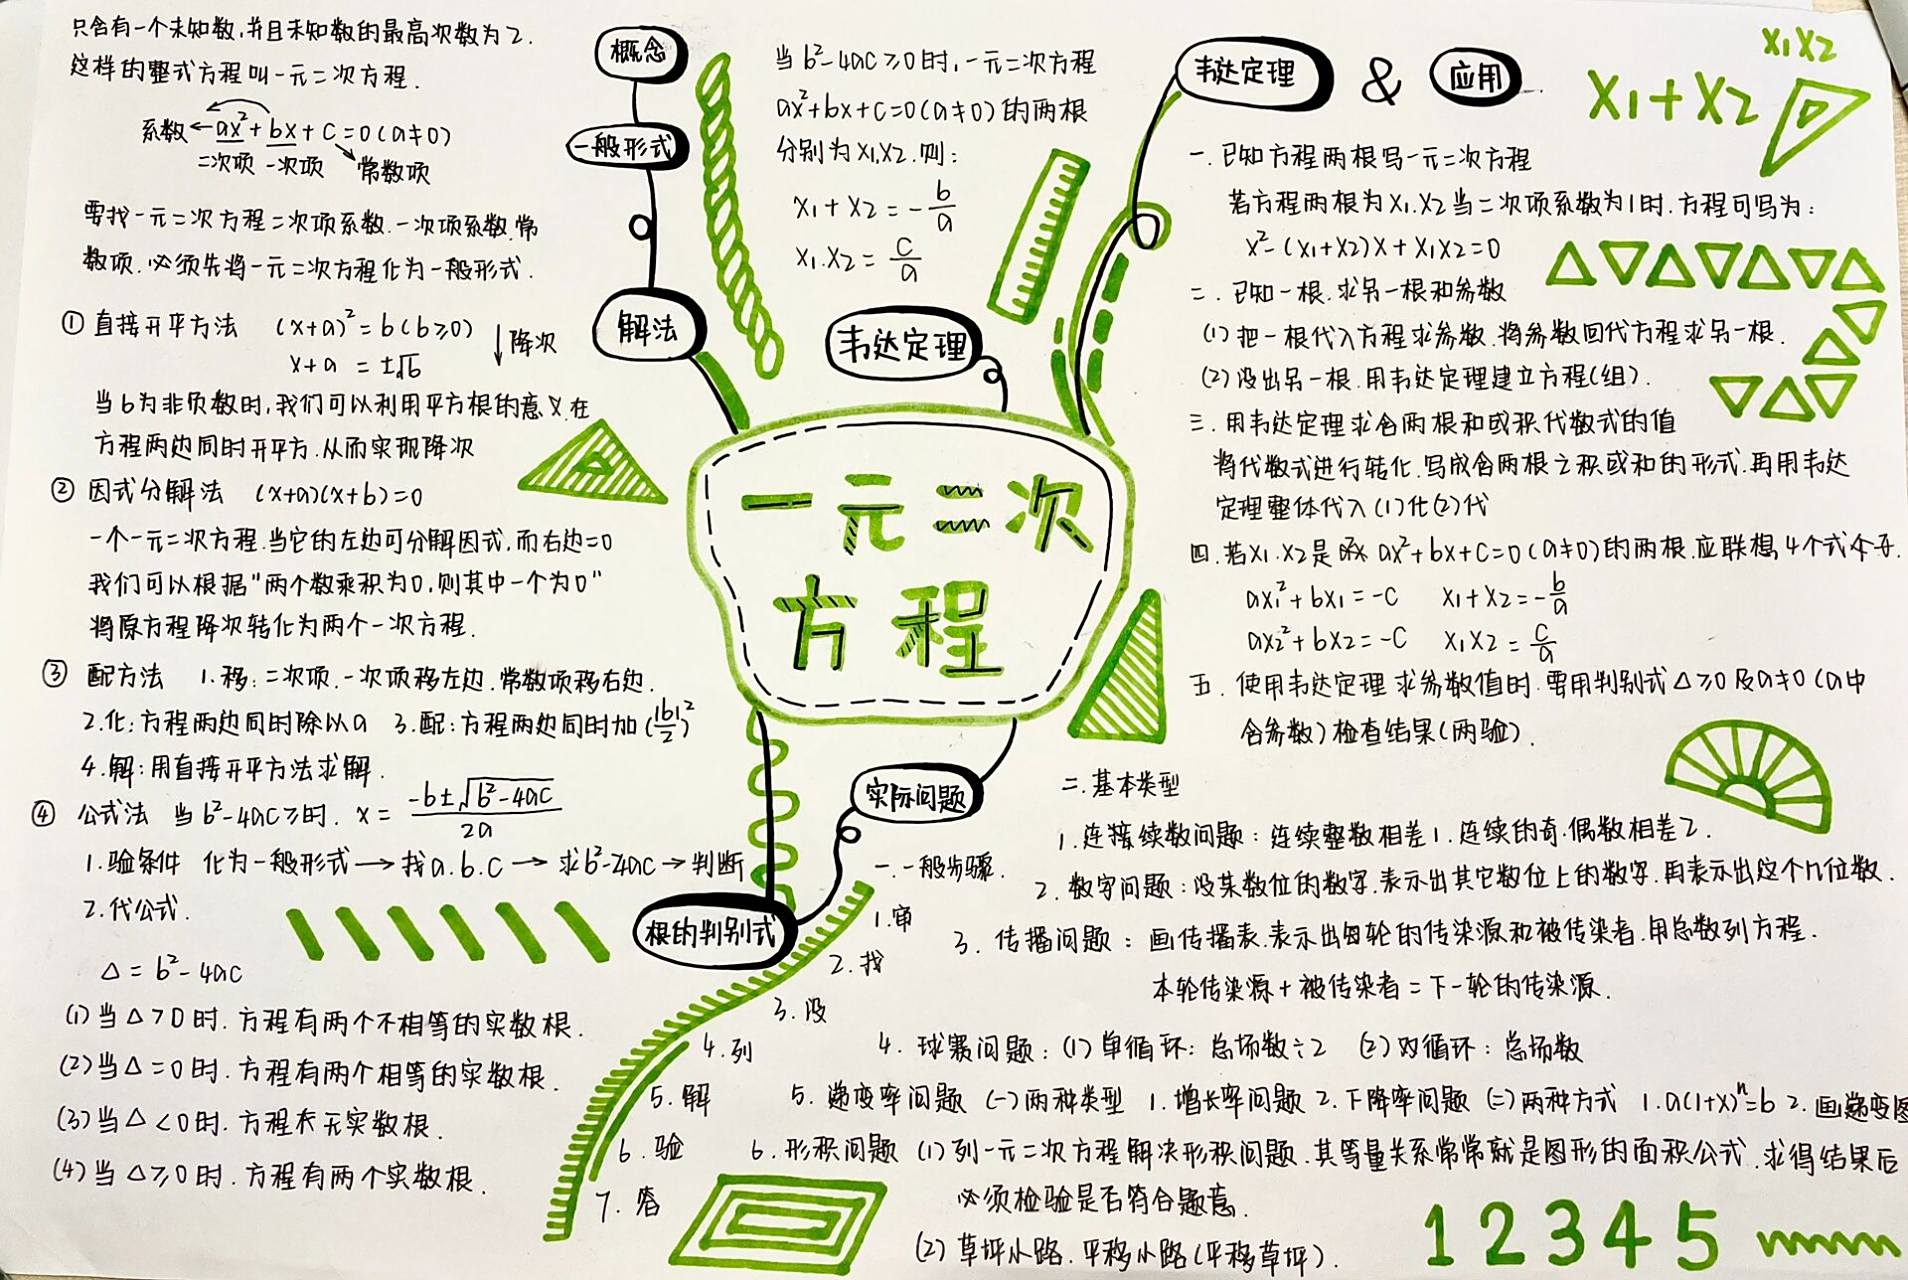 只含有一个未知数,并且未知数的最高次数为2.
这样的整式方程叫一元二次方程.
概念
系数←ax²+bx+c=0(a≠0)
二次项 一次项 常数项
一般形式
要找一元二次方程二次项系数.一次项系数.常
数项.必须先将一元二次方程化为一般形式.
解法
① 直接开平方法 (x+a)²=b(b≥0)
x+a =±√b
↓降次
当b为非负数时,我们可以利用平方根的意义.在
方程两边同时开平方.从而实现降次
② 因式分解法 (x+a)(x+b)=0
一个一元二次方程.当它的左边可分解因式.而右边=0
我们可以根据"两个数乘积为0.则其中一个为0"
将原方程降次转化为两个一次方程.
③ 配方法 1.移:二次项.一次项移左边.常数项移右边.
2.化:方程两边同时除以a 3.配:方程两边同时加(|b|/2)²
4.解:用直接开平方法求解.
④ 公式法 当b²-4ac≥时. x=(-b±√(b²-4ac))/2a
1.验条件 化为一般形式→找a.b.c→求b²-4ac→判断
2.代公式.
根的判别式
Δ=b²-4ac
(1)当Δ>0时.方程有两个不相等的实数根.
(2)当Δ=0时.方程有两个相等的实数根.
(3)当Δ<0时.方程无实数根.
(4)当Δ≥0时.方程有两个实数根.
当b²-4ac≥0时,一元二次方程
ax²+bx+c=0(a≠0)的两根
分别为x1.x2.则:
x1+x2=-b/a
x1.x2=c/a
韦达定理
一元二次
方程
韦达定理 & 应用
x1x2
x1+x2
一.已知方程两根写一元二次方程
若方程两根为x1.x2当二次项系数为1时.方程可写为:
x²-(x1+x2)x+x1x2=0
二.已知一根.求另一根和参数
(1)把一根代入方程求参数.将参数回代方程求另一根.
(2)设出另一根.用韦达定理建立方程(组).
三.用韦达定理求含两根和或积代数式的值
将代数式进行转化.写成含两根之积或和的形式.再用韦达
定理整体代入(1)化(2)代
四.若x1.x2是ax²+bx+c=0(a≠0)的两根.应联想4个式子.
ax1²+bx1=-c x1+x2=-b/a
ax2²+bx2=-c x1x2=c/a
五.使用韦达定理求参数值时.要用判别式Δ≥0及a≠0(a中
含参数)检查结果(两验).
实际问题
一.一般步骤.
1.审
2.找
3.设
4.列
5.解
6.验
7.答
二.基本类型
1.连续数问题:连续整数相差1.连续的奇.偶数相差2.
2.数字问题:设某数位的数字.表示出其它数位上的数字.再表示出这个几位数.
3.传播问题:画传播表.表示出每轮的传染源和被传染者.用总数列方程.
本轮传染源+被传染者=下一轮的传染源.
4.球赛问题:(1)单循环:总场数÷2 (2)双循环:总场数
5.递变率问题 (一)两种类型 1.增长率问题 2.下降率问题 (二)两种方式 1.a(1+x)ⁿ=b 2.画递变图
6.形积问题 (1)列一元二次方程解决形积问题.其等量关系常常就是图形的面积公式.求得结果后
必须检验是否符合题意.
(2)草坪小路.平移小路(平移草坪).
1 2 3 4 5